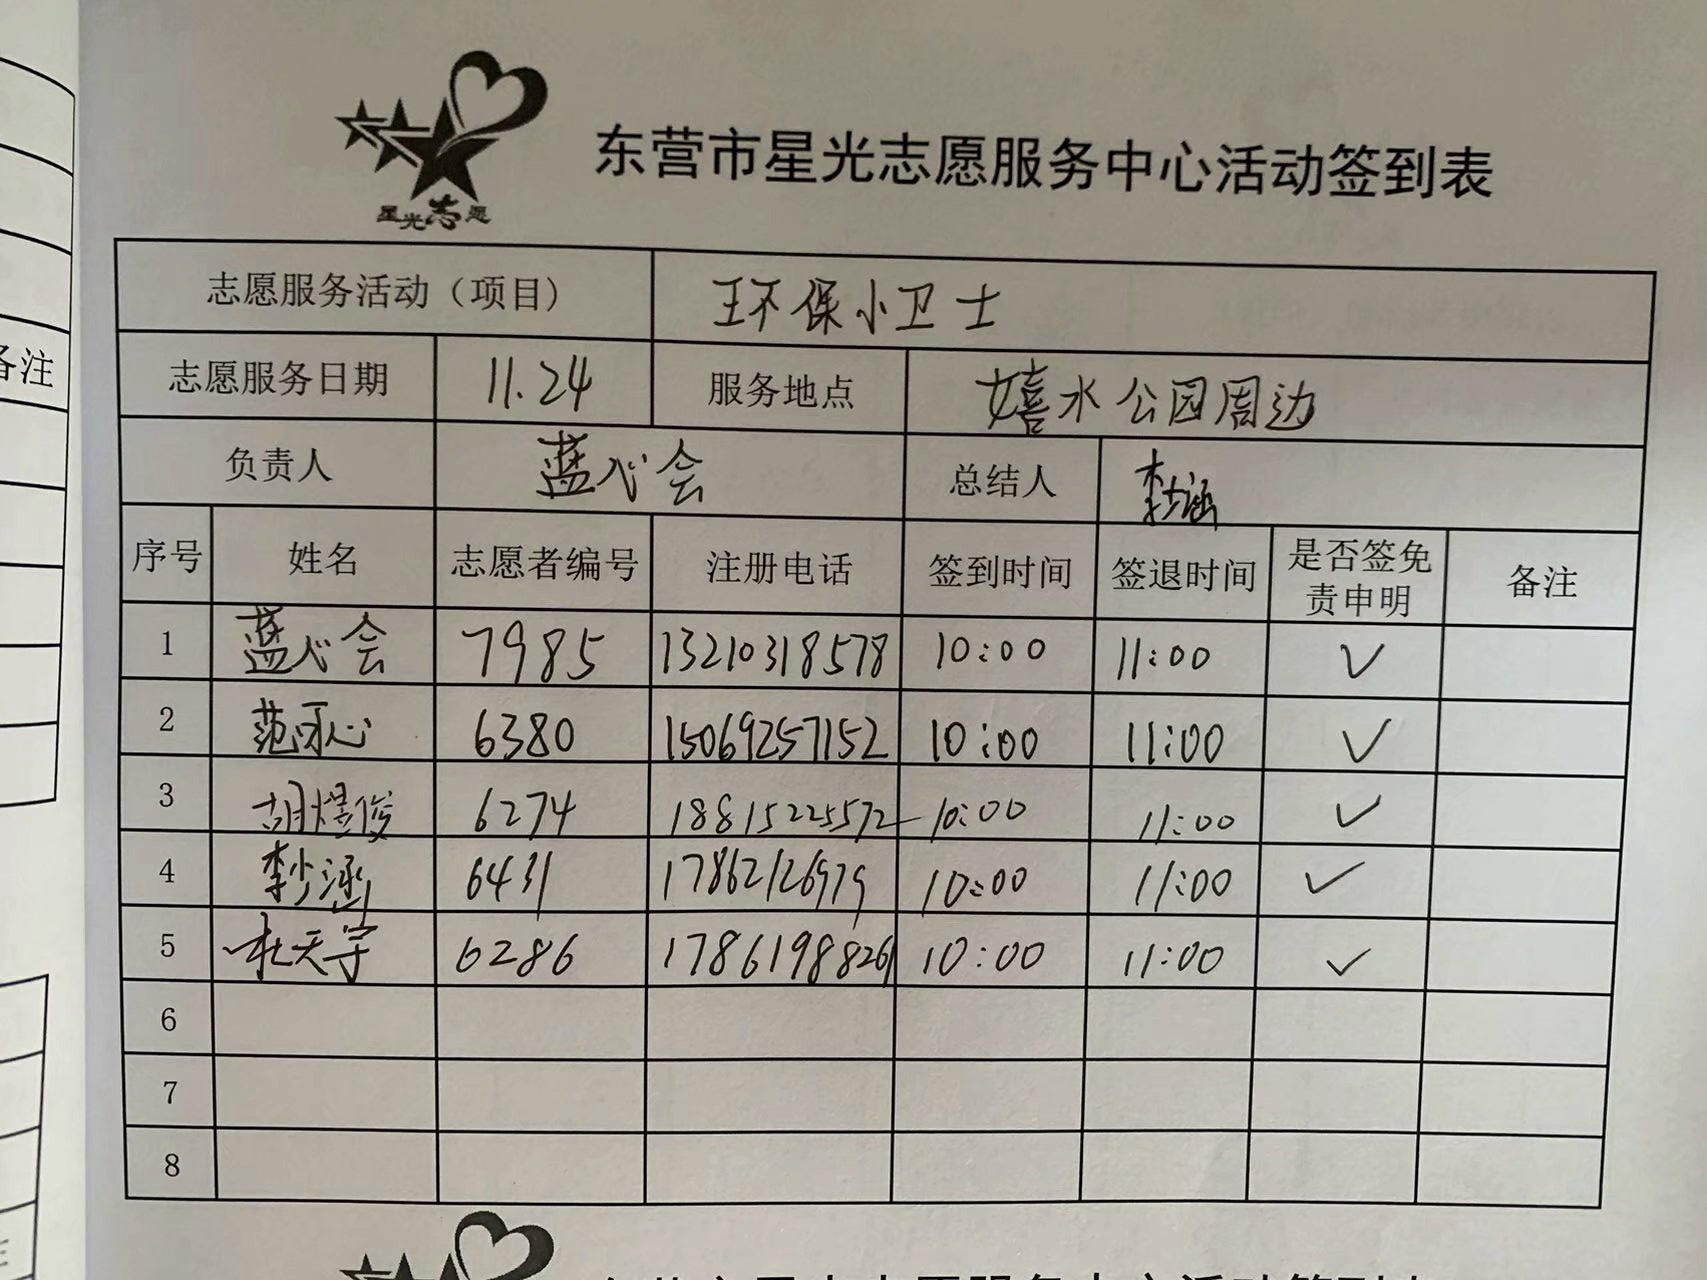 备注
星光志愿
东营市星光志愿服务中心活动签到表
志愿服务活动（项目） 环保小卫士
志愿服务日期 11.24 服务地点 嬉水公园周边
负责人 蓝心会 总结人 李少涵
序号 姓名 志愿者编号 注册电话 签到时间 签退时间 是否签免责申明 备注
1 蓝心会 7985 13210318578 10:00 11:00 ✓
2 范可心 6380 15069257152 10:00 11:00 ✓
3 胡煜俊 6274 18815225572 10:00 11:00 ✓
4 李少涵 6431 17862126979 10:00 11:00 ✓
5 杜天宇 6286 17861988261 10:00 11:00 ✓
6
7
8